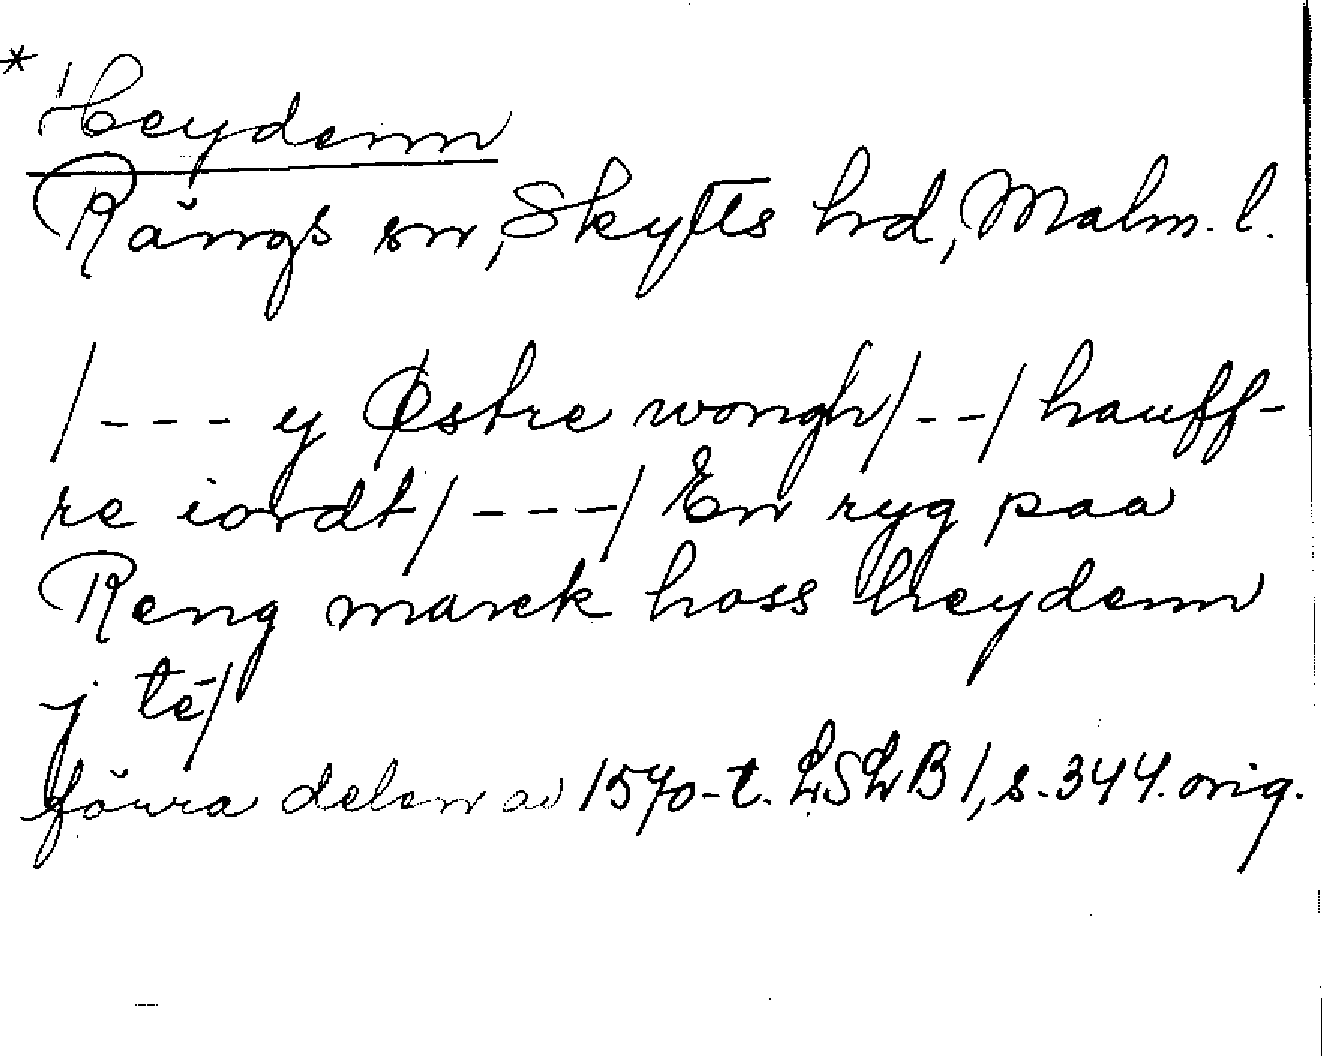 * Heydenn
Rängs sn, Skytts hd, Malm. l.
/--- y Østre wongh/--/hauff-
re iordt/---/ En ryg paa
Reng marck hoss heydenn
j te/
förra delen av 1570-t. LSLB 1, s. 344. orig.